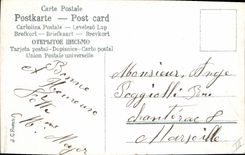 Carte Postale
Postkarte — Post card
Cartolina Postale — Levelező Lap
Brefkort — Briefkaart — Brevkort
ОТКРЫТОЕ ПИСЬМО
Tarjeta postal — Dopisnice — Carta postal
Union Postale universelle
Bonne
et Heureuse
Fête
M. Mayer
Monsieur Ange
Poggiolli
Marseille